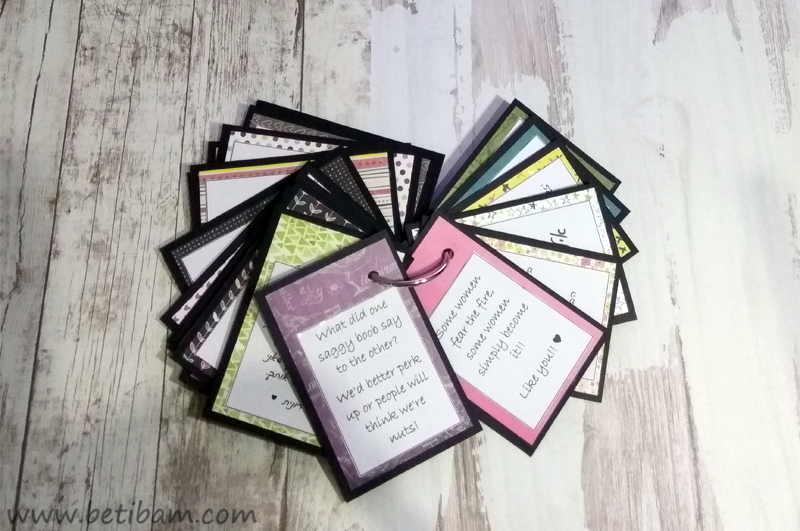 What did one
saggy boob say
to the other?
We'd better perk
up or people will
think we're
nuts!
Some women
fear the fire,
some women
simply become
it!!
Like you!! ♥
www.betibam.com